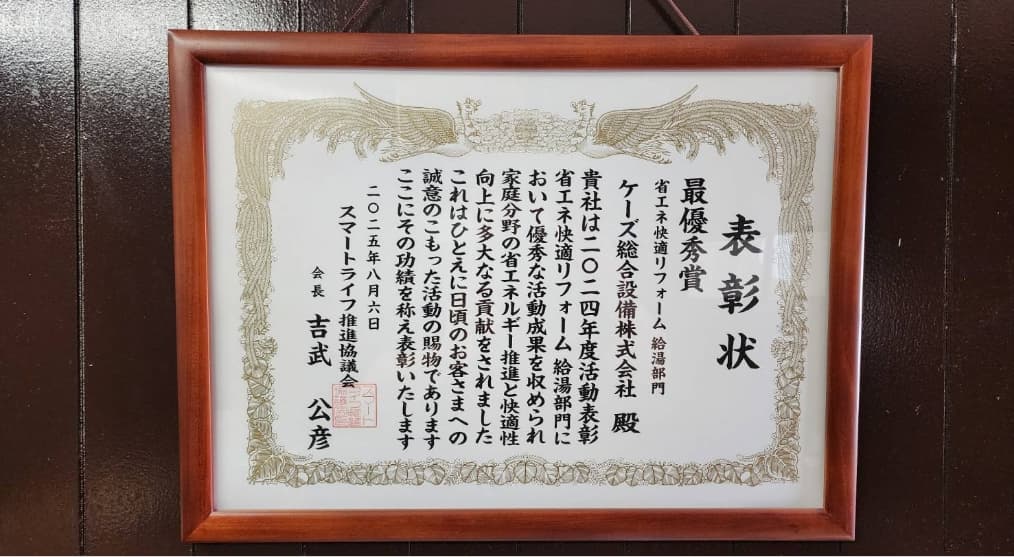 表彰状
最優秀賞
省エネ快適リフォーム 給湯部門
ケーズ総合設備株式会社 殿
貴社は二〇二四年度活動表彰
省エネ快適リフォーム 給湯部門に
おいて優秀な活動成果を収められ
家庭分野の省エネルギー推進と快適性
向上に多大なる貢献をされました
これはひとえに日頃のお客さまへの
誠意のこもった活動の賜物であります
ここにその功績を称え表彰いたします
二〇二五年八月六日
スマートライフ推進協議会
会長 吉武 公彦